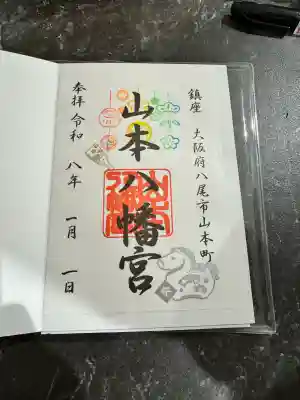 鎮座 大阪府八尾市山本町
山本八幡宮
奉拝 令和 八年 一月 一日